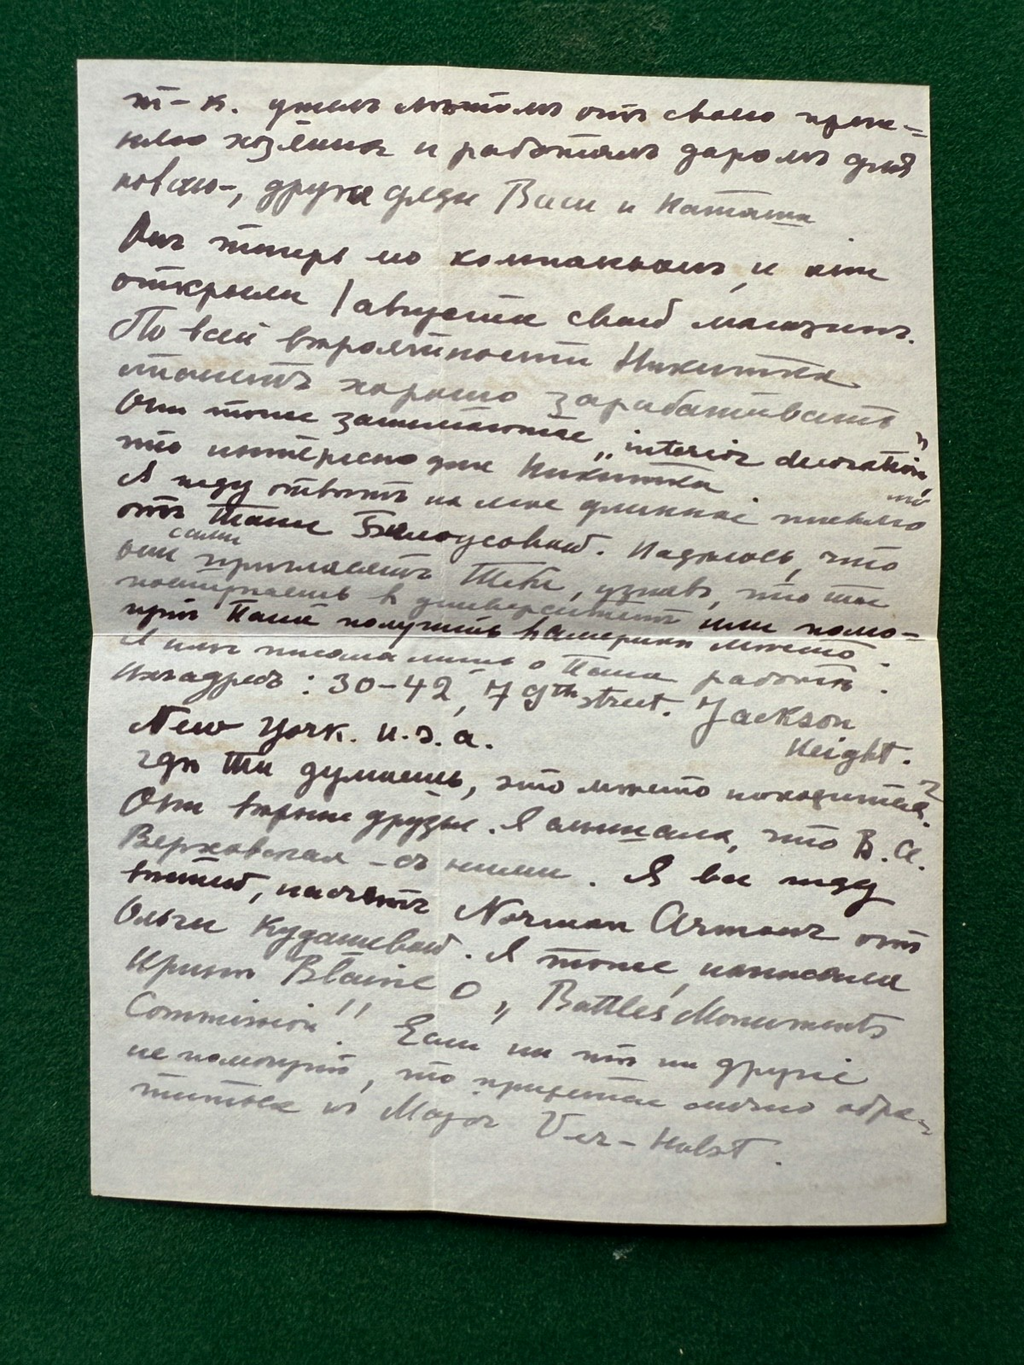 т-к. ушелъ лѣтомъ отъ своего преж-
няго хозяина и работалъ даромъ для
новаго, друга дяди Васи и Наташи
Онъ теперь его компаньонъ, и они
открыли 1 августа свой магазинъ.
По всей вѣроятности Никитка
станетъ хорошо зарабатывать
Они тоже занимаются „interior decoration",
что интересно для Никитка
Я жду отвѣтъ на мое длинное письмо
отъ Тани Бѣлоусовой. Надѣюсь, что
они сами пригласятъ Тебя, узнавъ, что ты
поступаешь въ университетъ или помо-
гутъ Папѣ получить въ Америкѣ мѣсто.
Я имъ писала лишь о Папѣ работѣ.
Ихъ адресъ: 30-42, 79th street. Jackson
Height.
New York. U.S.A.
Гдѣ Ты думаешь, это мѣсто находится?
Они вѣрные друзья. Я слышала, что В. А.
Верховская - съ ними. Я все жду
вѣстей, насчетъ Norman Armour отъ
Ольги Кудашевой. Я тоже написала
Иринѣ Blaine о „Battles Monuments
Commission". Если ни тѣ ни другіе
не помогутъ, то придется лично обра-
титься къ Major Ver-Hulst.